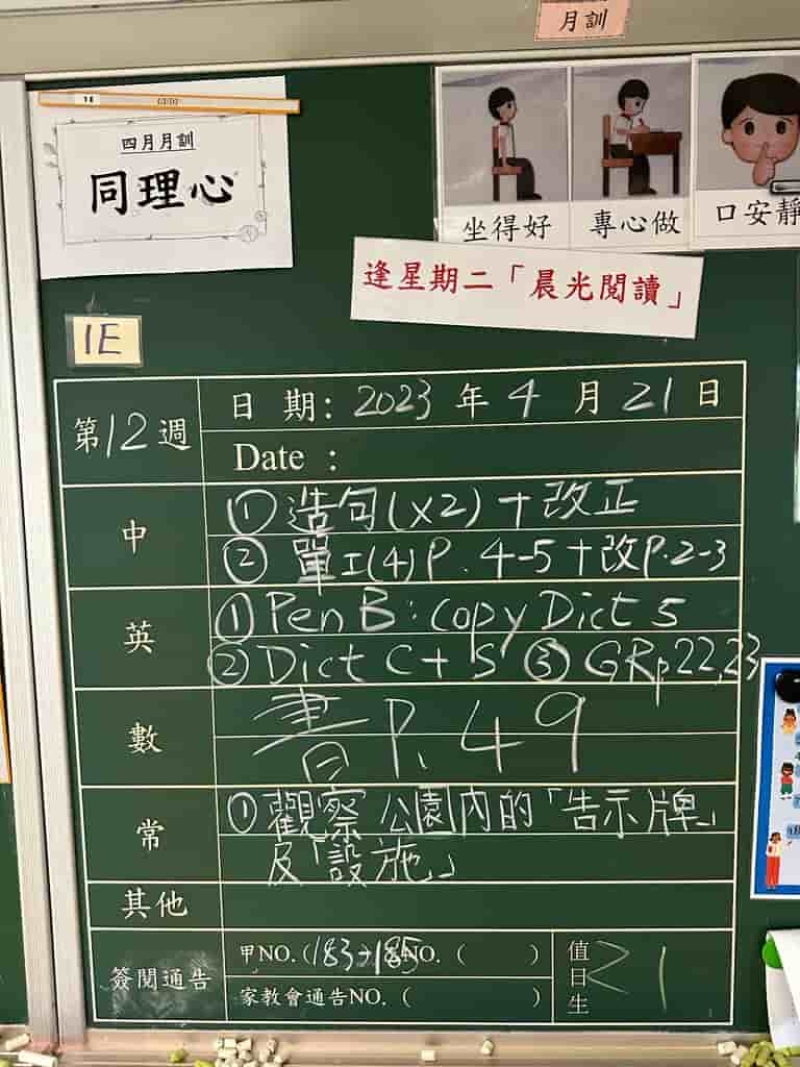 月訓
1E
四月月訓
同理心
坐得好
專心做
口安靜
逢星期二「晨光閱讀」
1E
第12週
日 期: 2023 年 4 月 21 日
Date :
中
① 造句(x2) + 改正
② 單工(4) P. 4-5 + 改P.2-3
英
① Pen B : copy Dict 5
② Dict C + S ③ GRp22,23
數
書P. 49
常
① 觀察 公園內的「告示牌」
及「設施」
其他
簽閱通告
甲NO. (183→185NO. ( )
家教會通告NO. ( )
值日生
21